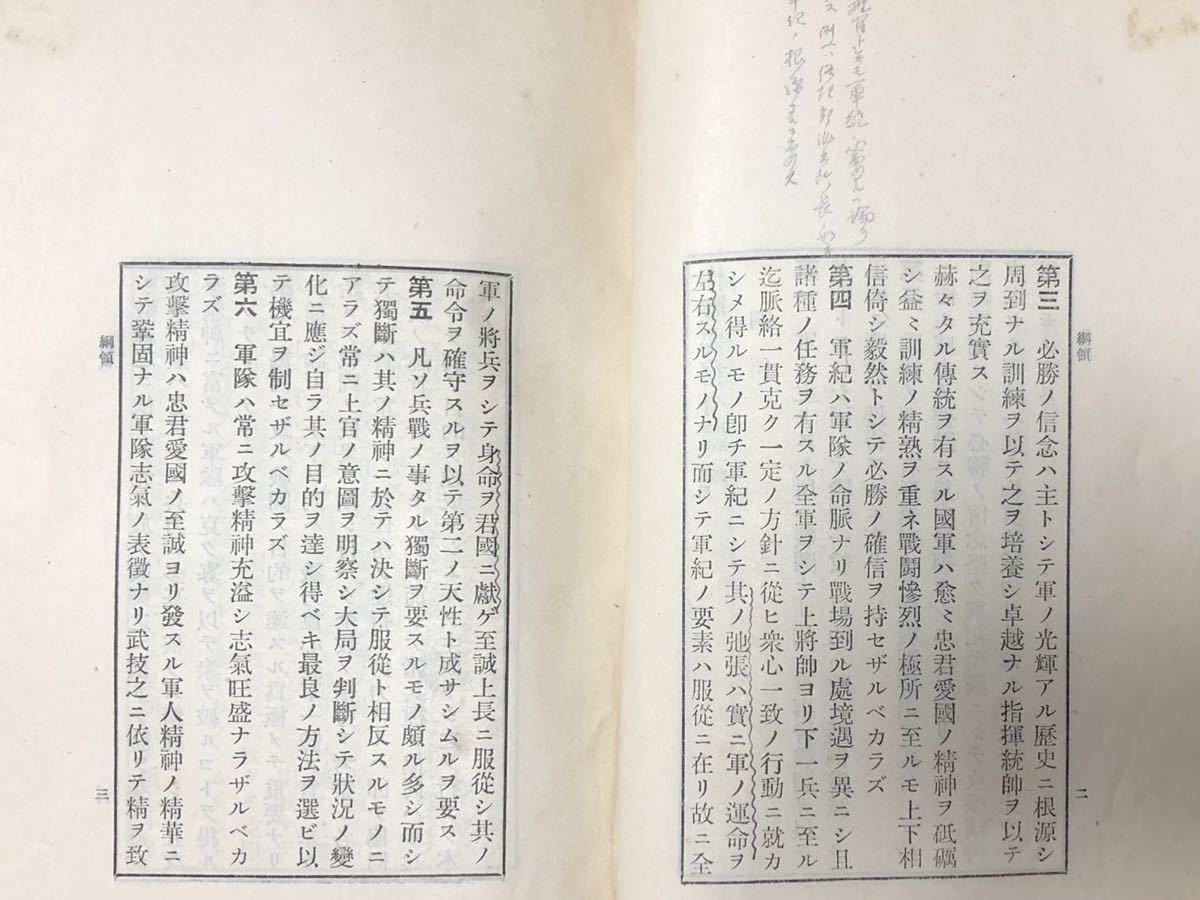 綱領
二
第三　必勝ノ信念ハ主トシテ軍ノ光輝アル歷史ニ根源シ
周到ナル訓練ヲ以テ之ヲ培養シ卓越ナル指揮統帥ヲ以テ
之ヲ充實ス
赫々タル傳統ヲ有スル國軍ハ愈〻忠君愛國ノ精神ヲ砥礪
シ益〻訓練ノ精熟ヲ重ネ戰鬪慘烈ノ極所ニ至ルモ上下相
信倚シ毅然トシテ必勝ノ確信ヲ持セザルベカラズ
第四　軍紀ハ軍隊ノ命脈ナリ戰場到ル處境遇ヲ異ニシ且
諸種ノ任務ヲ有スル全軍ヲシテ上將帥ヨリ下一兵ニ至ル
迄脈絡一貫克ク一定ノ方針ニ從ヒ衆心一致ノ行動ニ就カ
シメ得ルモノ卽チ軍紀ニシテ其ノ弛張ハ實ニ軍ノ運命ヲ
左右スルモノナリ而シテ軍紀ノ要素ハ服從ニ在リ故ニ全
軍ノ將兵ヲシテ身命ヲ君國ニ獻ゲ至誠上長ニ服從シ其ノ
命令ヲ確守スルヲ以テ第二ノ天性ト成サシムルヲ要ス
第五　凡ソ兵戰ノ事タル獨斷ヲ要スルモノ頗ル多シ而シ
テ獨斷ハ其ノ精神ニ於テハ決シテ服從ト相反スルモノニ
アラズ常ニ上官ノ意圖ヲ明察シ大局ヲ判斷シテ狀況ノ變
化ニ應ジ自ラ其ノ目的ヲ達シ得ベキ最良ノ方法ヲ選ビ以
テ機宜ヲ制セザルベカラズ
第六　軍隊ハ常ニ攻擊精神充溢シ志氣旺盛ナラザルベカ
ラズ
攻擊精神ハ忠君愛國ノ至誠ヨリ發スル軍人精神ノ精華ニ
シテ鞏固ナル軍隊志氣ノ表徵ナリ武技之ニ依リテ精ヲ致
綱領
三